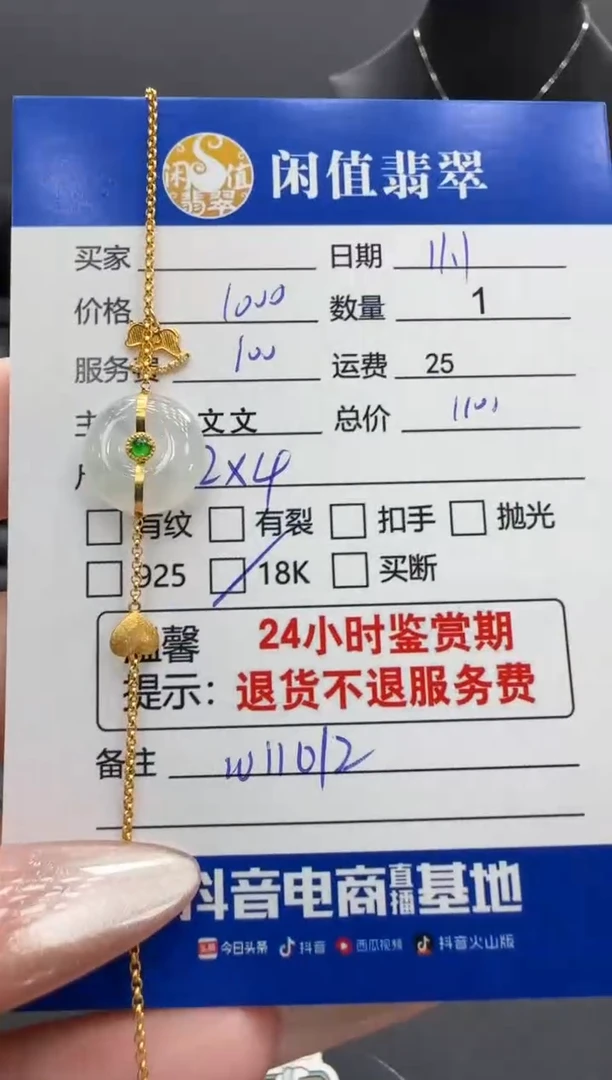 闲值
翡翠
闲值翡翠
买家 日期 11.1
价格 1000 数量 1
服务费 100 运费 25
主 文文 总价 1101
2X4
有纹 有裂 扣手 抛光
925 18K 买断
温馨 24小时鉴赏期
提示: 退货不退服务费
备注 w11012
抖音电商直播基地
头条 今日头条 抖音 西瓜视频 抖音火山版